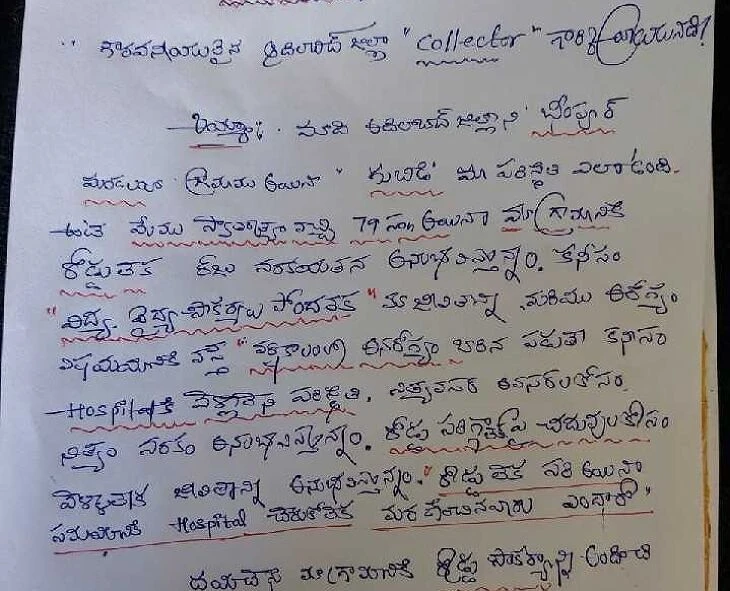 " గౌరవనీయులైన ఆదిలాబాద్ జిల్లా "Collector" గారికి
అయ్యా; మాది ఆదిలాబాద్ జిల్లాని భీంపూర్
మండలం గ్రామము అయినా " గుబిడి" మా పరిస్థితి ఎలా ఉంది.
అంటే మేము స్వాతంత్ర్యం వచ్చి 79 సం౹౹ అయినా మా గ్రామానికి
రోడ్డు లేక నరకయాతన అనుభవిస్తున్నాం. కనీసం
"విద్య, వైద్య సౌకర్యాలు పొందలేక" మా జీవితాన్ని మరియు ఆరోగ్యం
విషయమునికి వస్తే "వర్షాకాలంలో అనారోగ్యం బారిన పడుతా కనీసం
Hospital కి వెళ్లలేని పరిస్థితి, నిత్యవసర అవసరాలకోసం
నిత్యం నరకం అనుభవిస్తున్నాం. రోడ్డు సరిగ్గా లేక చదువులకోసం
వెళ్ళలేక జీవితాన్ని అనుభవిస్తున్నాం." రోడ్డు లేక సరి అయినా
సమయానికి Hospital చేరుకోలేక మరణించినవారు ఎందారో"
దయచేసి మా గ్రామానికి రోడ్డు సౌకర్యాన్ని అందించి